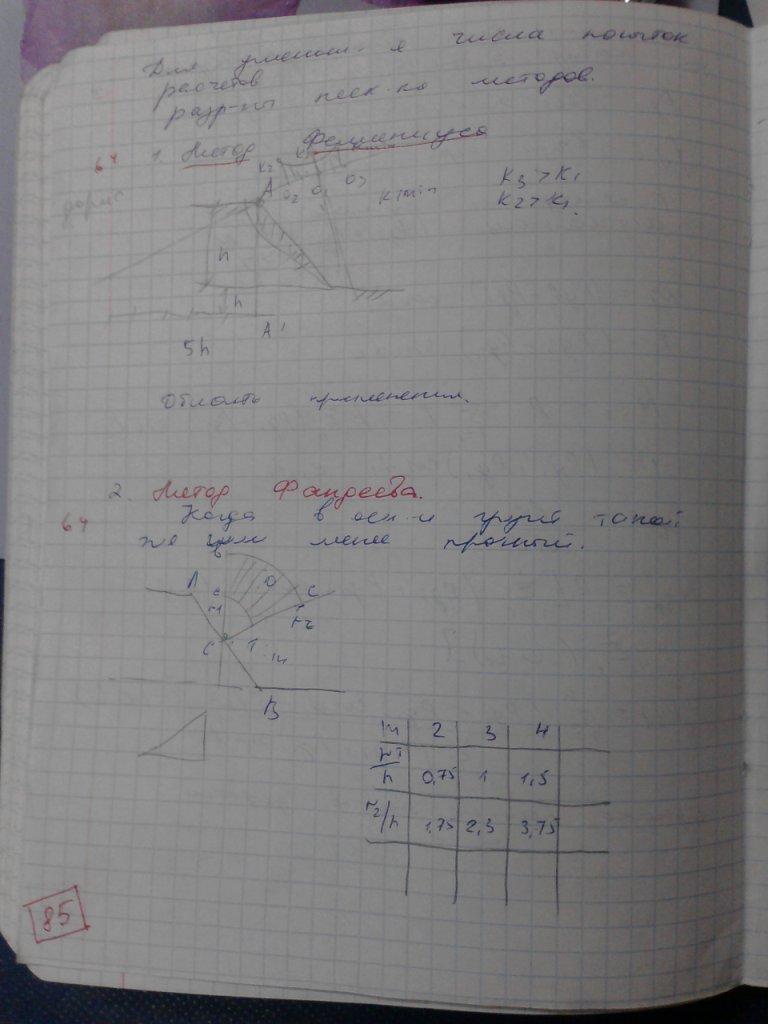 Для уменьш-я числа попыток
расчетов
разр-ны неск-ко методов.
64 1. Метод Феллениуса
K2
A O2 O1 O3
Kmin
K3 > K1
K2 > K1
h
h
A'
5h
Область применения.
2. Метод Фандеева.
64 Когда в осн-и грунт такой
же или менее прочный.
A
C
C
1:m
B
m 2 3 4
r1/h 0,75 1 1,5
r2/h 1,75 2,3 3,75
85